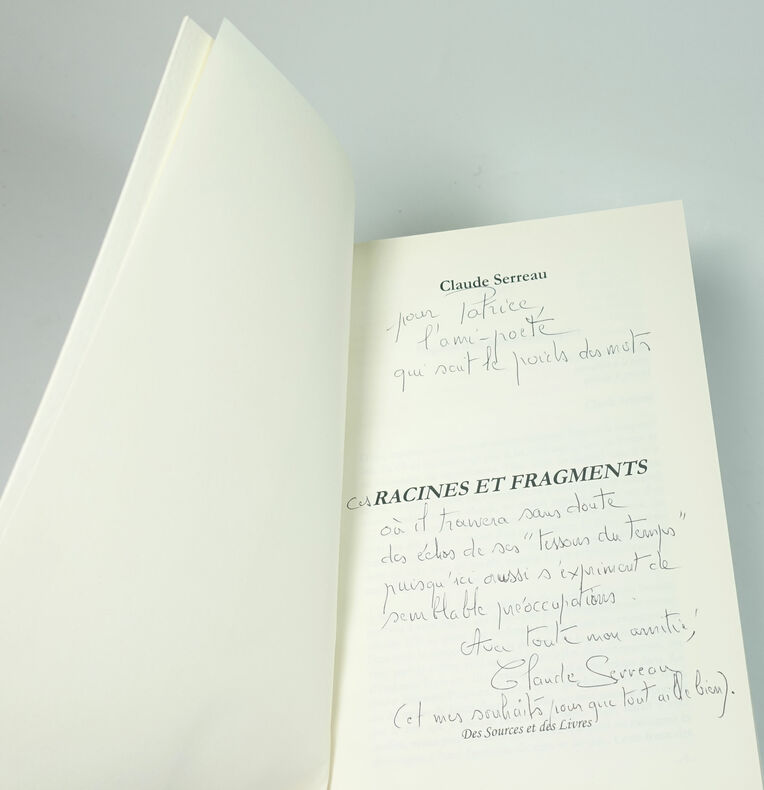 Claude Serreau
pour Patrice,
l'ami-poète
qui sait le poids des mots
Ces RACINES ET FRAGMENTS
où il trouvera sans doute
des échos de ses "tessons du temps"
puisqu'ici aussi s'expriment de
semblable préoccupations.
Avec toute mon amitié,
Claude Serreau
(et mes souhaits pour que tout aille bien).
Des Sources et des Livres